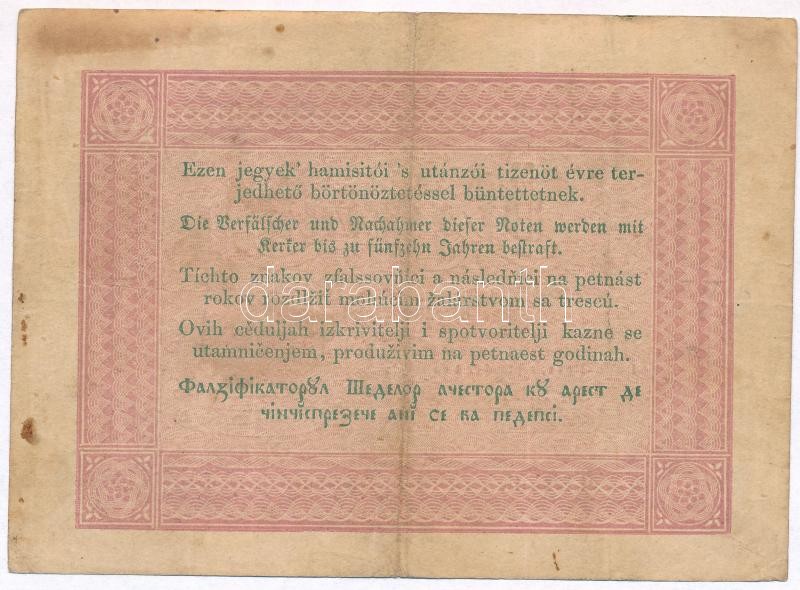 Ezen jegyek' hamisitói 's utánzói tizenöt évre ter-
jedhető börtönöztetéssel büntettetnek.
Die Verfälscher und Nachahmer dieser Noten werden mit
Kerker bis zu fünfzehn Jahren bestraft.
Tíchto znakov zfalssovňíci a následňíci na petnást
rokov rozdlžiť mohúcím žalárstvom sa trescú.
Ovih céduljah izkrivitelji i spotvoritelji kazne se
utamničenjem, produživim na petnaest godinah.
Фалꙁіфікаторꙋл Шеделор ачестора кꙋ арест де
чінчіспреꙁече анї се ва педепсі.
darabanth